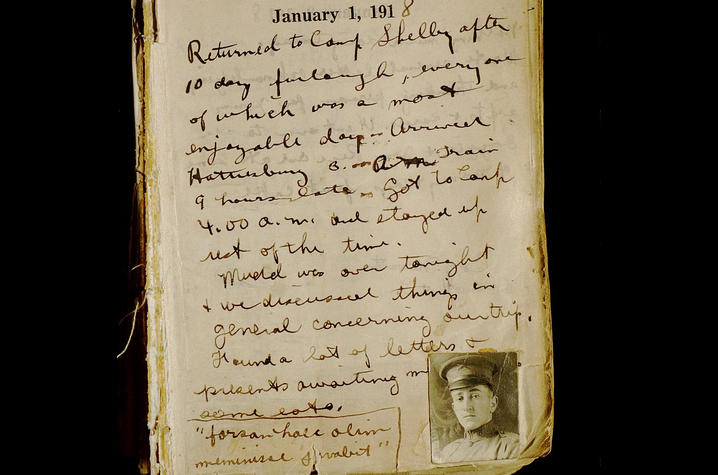 January 1, 1918
Returned to Camp Shelby after
10 day furlough, everyone
of which was a most
enjoyable day - Arrived
Hattiesburg 3.00 A.M. Train
9 hours late - Got to Camp
4.00 a.m. and stayed up
rest of the time.
Mudd was over tonight
& we discussed things in
general concerning our trip.
Found a lot of letters &
presents awaiting
some eats.
"forsan haec olim
meminisse juvabit"